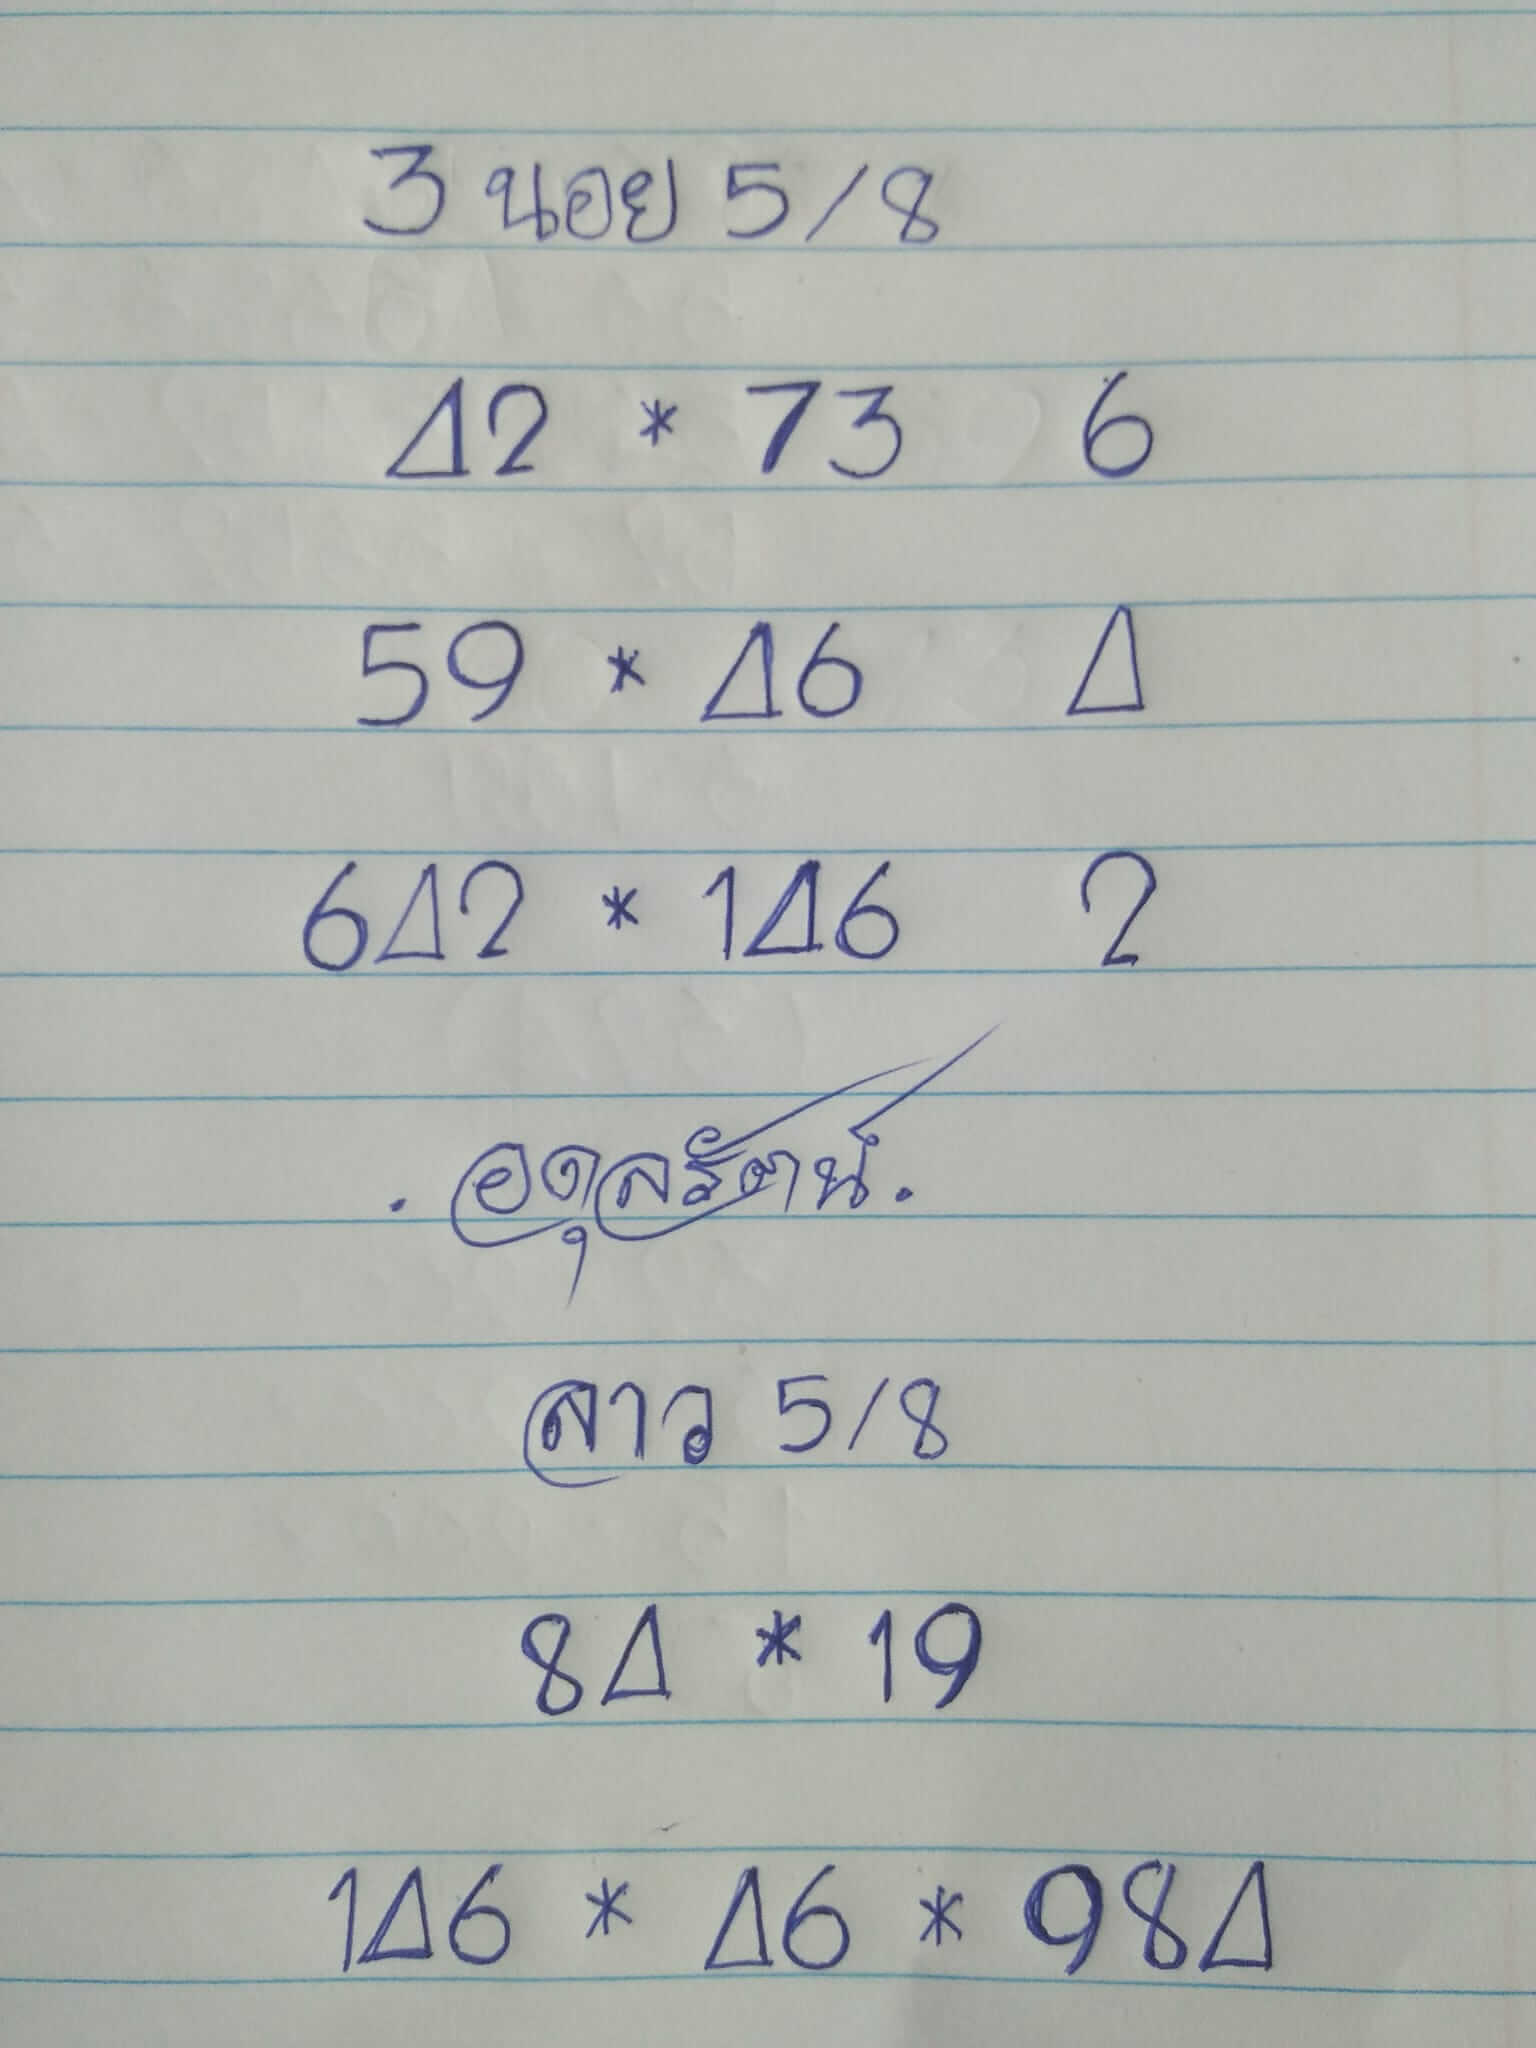 3 นอย 5/8
Δ2 * 73 6
59 * Δ6 Δ
6Δ2 * 1Δ6 2
. อดุลรัตน์ .
ลาว 5/8
8Δ * 19
1Δ6 * Δ6 * 98Δ